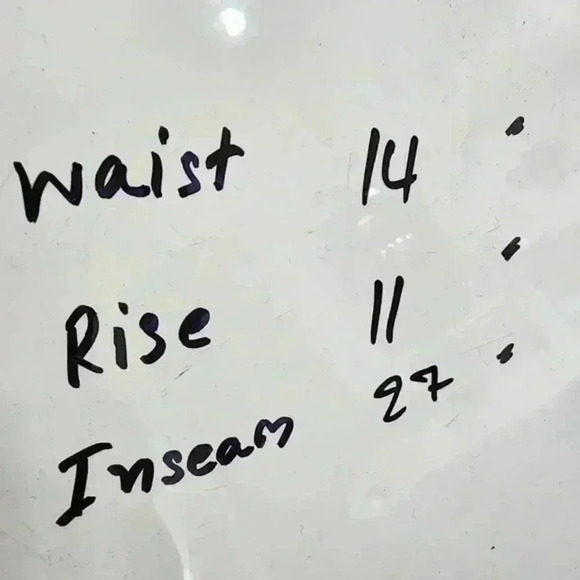 Waist 14
Rise 11
Inseam 27